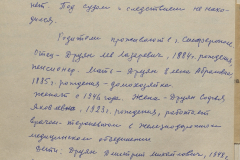 нет. Под судом и следствием не нахо-
дился.
Родители проживают в г. Симферополе,
Отец - Друян Лев Лазаревич, 1884 г. рождения,
пенсионер. Мать - Друян Елена Абрамовна
1885 г. рождения - домохозяйка.
Женат с 1946 года. Жена - Друян Софья
Яковлевна, 1923 г. рождения, работает
врачом-терапевтом в железнодорожной
медицинском объединении
Дети: Друян Дмитрий Михайлович, 1948,